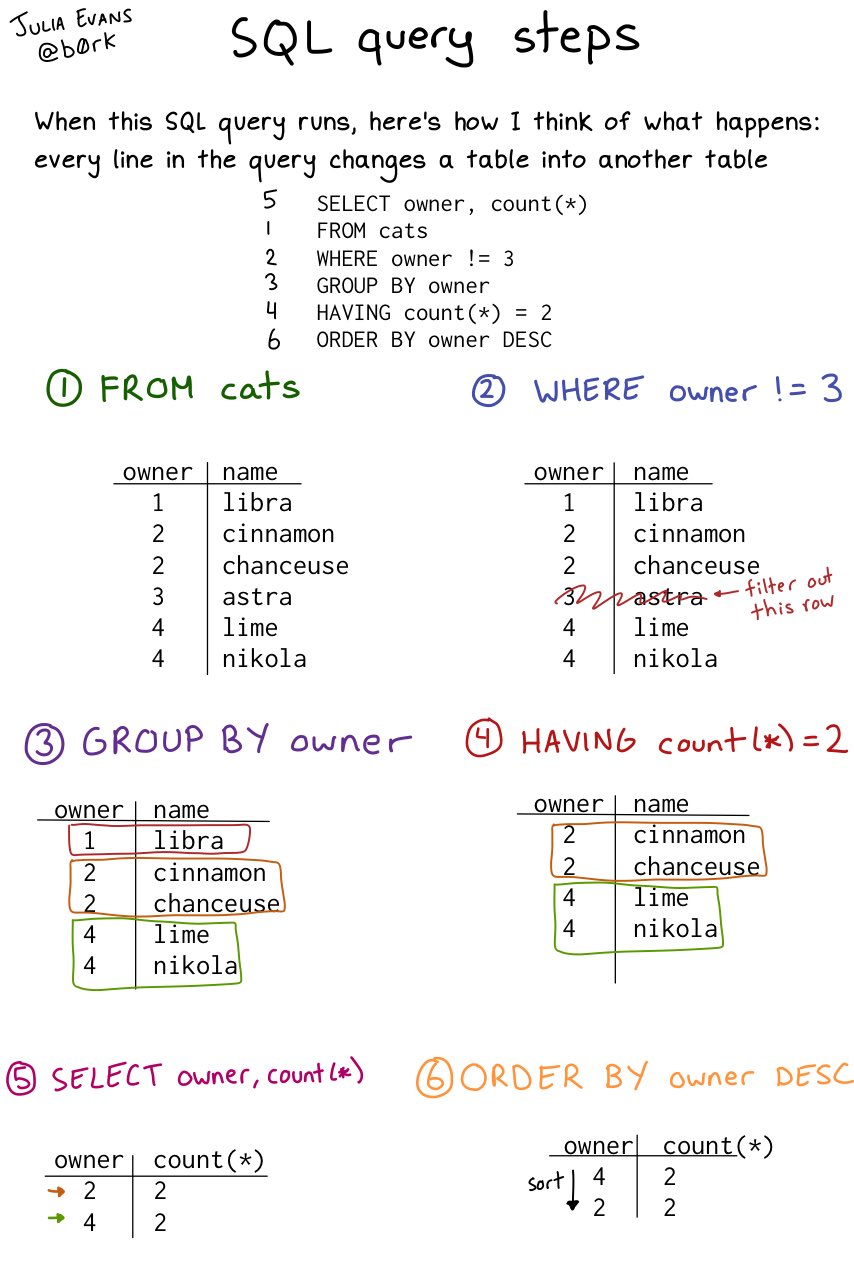 JULIA EVANS
@b0rk
SQL query steps
When this SQL query runs, here's how I think of what happens:
every line in the query changes a table into another table
5 SELECT owner, count(*)
1 FROM cats
2 WHERE owner != 3
3 GROUP BY owner
4 HAVING count(*) = 2
6 ORDER BY owner DESC
① FROM cats
owner name
1 libra
2 cinnamon
2 chanceuse
3 astra
4 lime
4 nikola
② WHERE owner != 3
owner name
1 libra
2 cinnamon
2 chanceuse
3 astra
filter out
this row
4 lime
4 nikola
③ GROUP BY owner
owner name
1 libra
2 cinnamon
2 chanceuse
4 lime
4 nikola
④ HAVING count(*) = 2
owner name
2 cinnamon
2 chanceuse
4 lime
4 nikola
⑤ SELECT owner, count(*)
owner count(*)
2 2
4 2
⑥ ORDER BY owner DESC
owner count(*)
sort
4 2
2 2